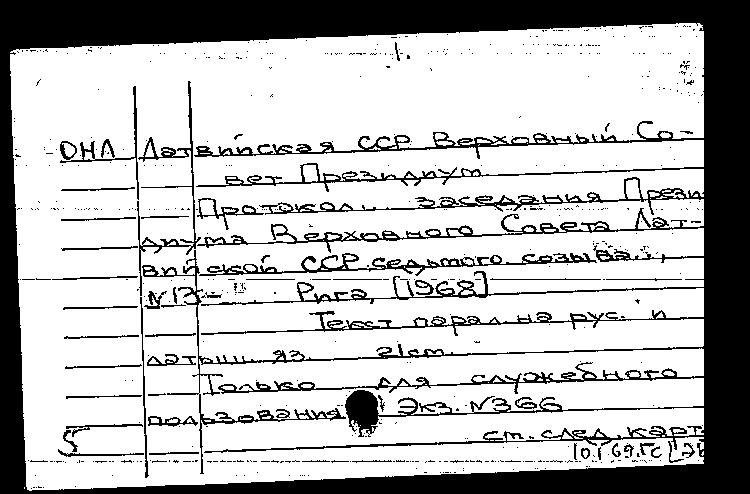 1.
ОНЛ Латвийская ССР Верховный Со-
вет Президиум
Протокол... заседания Прези
диума Верховного Совета Лат-
вийской ССР седьмого созыва...,
N13- Рига, [1968]
Текст парал. на рус. и
латыш. яз. 21см.
Только для служебного
пользования Экз. N366
5 ст. след. карт